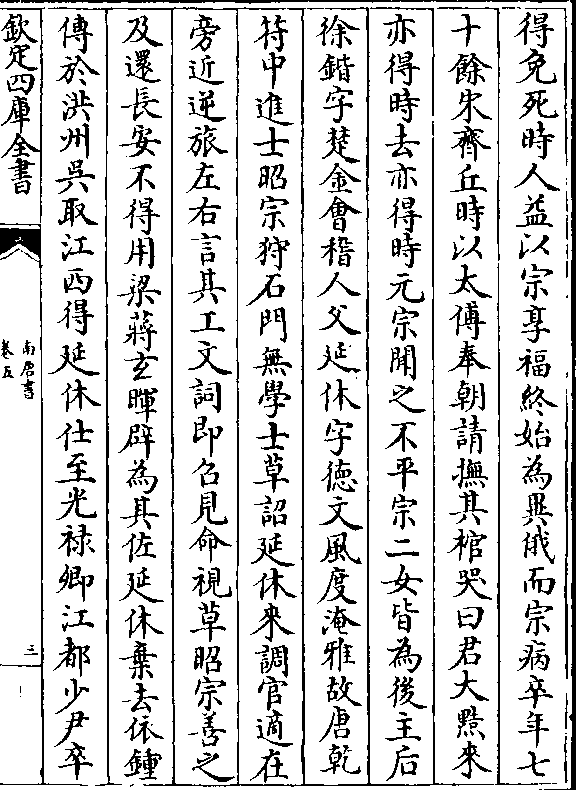 得免死時人益以宗享福終始為異俄而宗病卒年七
十餘宋齊丘時以太傅奉朝請撫其棺哭曰君大黠來
亦得時去亦得時元宗聞之不平宗二女皆為後主后
徐鍇字楚金會稽人父延休字徳文風度淹雅故唐乾
符中進士昭宗狩石門無學士草詔延休來調官適在
旁近逆旅左右言其工文詞即召見命視草昭宗善之
及還長安不得用梁蔣𤣥暉辟為其佐延休棄去依鍾
傳於洪州吳取江西得延休仕至光禄卿江都少尹卒
欽定四庫全書
南唐書
卷五
三